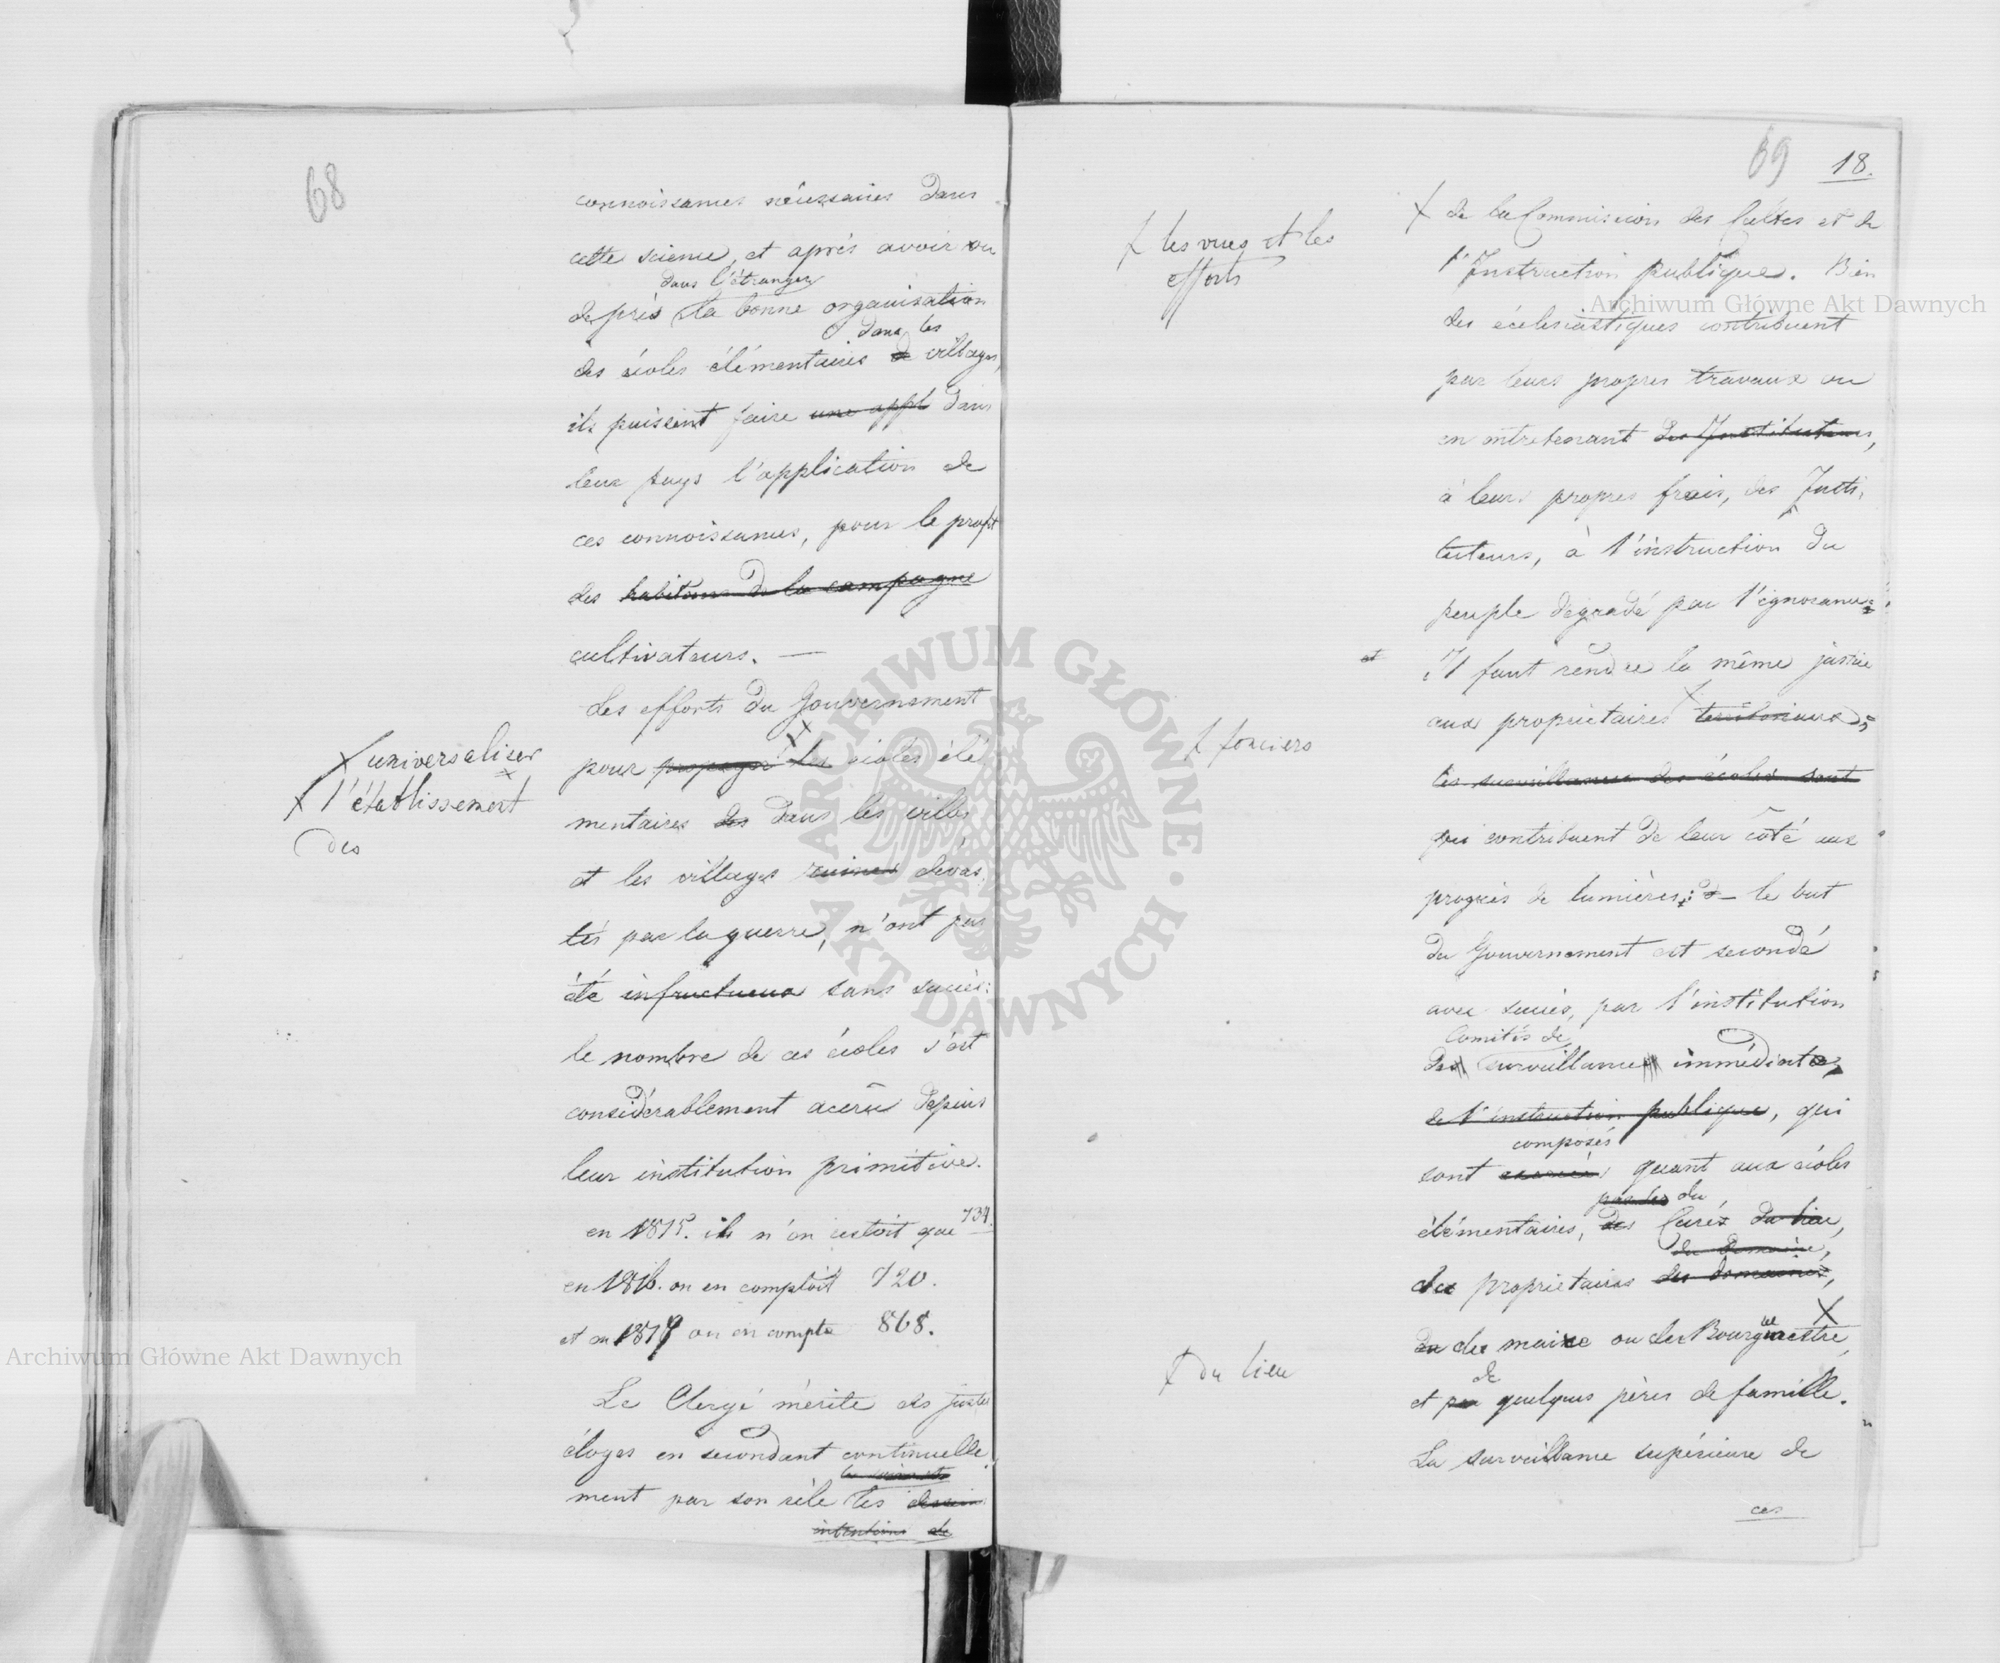 68
connoissances nécessaires dans
cette science, et après avoir vu
dans l'étranger
de près la bonne organisation
dans les
des écoles élémentaires de villages,
ils puissent faire une appl dans
leur pays l'application de
ces connoissances, pour le profit
des habitans de la campagne
cultivateurs. —
Les efforts du Gouvernement
universaliser
pour propager les écoles élé
l'établissement
des
mentaires des dans les villes
et les villages ruinés dévas
tés par la guerre, n'ont pas
été infructueux sans succès:
le nombre de ces écoles s'est
considérablement acêru depuis
leur institution primitive.
en 1815. ils n'en existoit que 734.
en 1816. on en comptoit 720.
et en 1819 on en compte 868.
Le Clergé mérite des justes
éloges en secondant continuelle
ment par son zèle les dessein
intentions de
69 18.
les vues et les
efforts
de la Commission des Cultes et de
l'Instruction publique. Bien
des écclesiastiques contribuent
par leurs propres travaux ou
en entretenant des Instituteurs,
à leurs propres frais, des Insti
tuteurs, à l'instruction du
peuple dégradé par l'ignorance:
et
Il faut rendre la même justice
aux propriétaires territoriaux
fonciers
les surveillances des écoles sont
qui contribuent de leur côté aux
progrès de lumières: et le but
du Gouvernement est secondé
avec succès, par l'institution
Comités de
des surveillances immédiates
de l'instruction publique, qui
composés
sont exercés quant aux écoles
par les du
élémentaires, des Curés du lieu,
du domaine,
des propriétaires des domaines,
du des maire ou des Bourgmestre,
du lieu
de
et par quelques pères de famille.
La surveillance supérieure de
ces
Archiwum Główne Akt Dawnych
Archiwum Główne Akt Dawnych
ARCHIWUM GŁÓWNE · AKT DAWNYCH ·